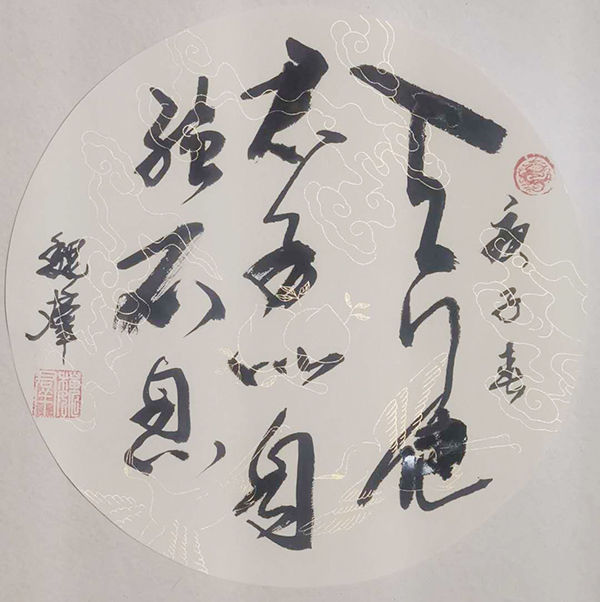 庚子春
天行健
君子以自
强不息
魏